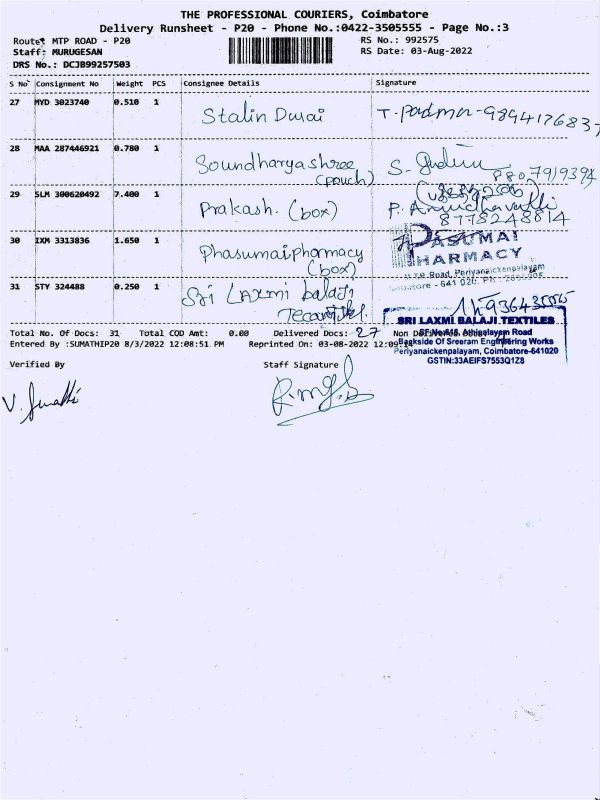 THE PROFESSIONAL COURIERS, Coimbatore
Delivery Runsheet - P20 - Phone No.:0422-3505555 - Page No.:3
Route: MTP ROAD - P20 RS No.: 992575
Staff: MURUGESAN RS Date: 03-Aug-2022
DRS No.: DCJB99257503
S No Consignment No Weight PCS Consignee Details Signature
27 MYD 3023740 0.510 1 Stalin Durai T. Padma - 9894176837
28 MAA 287446921 0.780 1 Soundharyashree S.
(pouch) 8807919394
29 SLM 300620492 7.400 1 Prakash. (box) P.
8778248814
30 IXM 3313836 1.650 1 Phasumaipharmacy PASUMAI
(box) PHARMACY
Road, Periyanaickenpalayam
31 STY 324488 0.250 1 Sri Laxmi balaji
SRI LAXMI BALAJI TEXTILES
Total No. Of Docs: 31 Total COD Amt: 0.00 Delivered Docs: 27 Non Athipalayam Road
Entered By :SUMATHIP20 8/3/2022 12:08:51 PM Reprinted On: 03-08-2022 Backside Of Sreeram Engineering Works
Periyanaickenpalayam, Coimbatore-641020
GSTIN:33AEIFS7553Q1Z8
Verified By Staff Signature